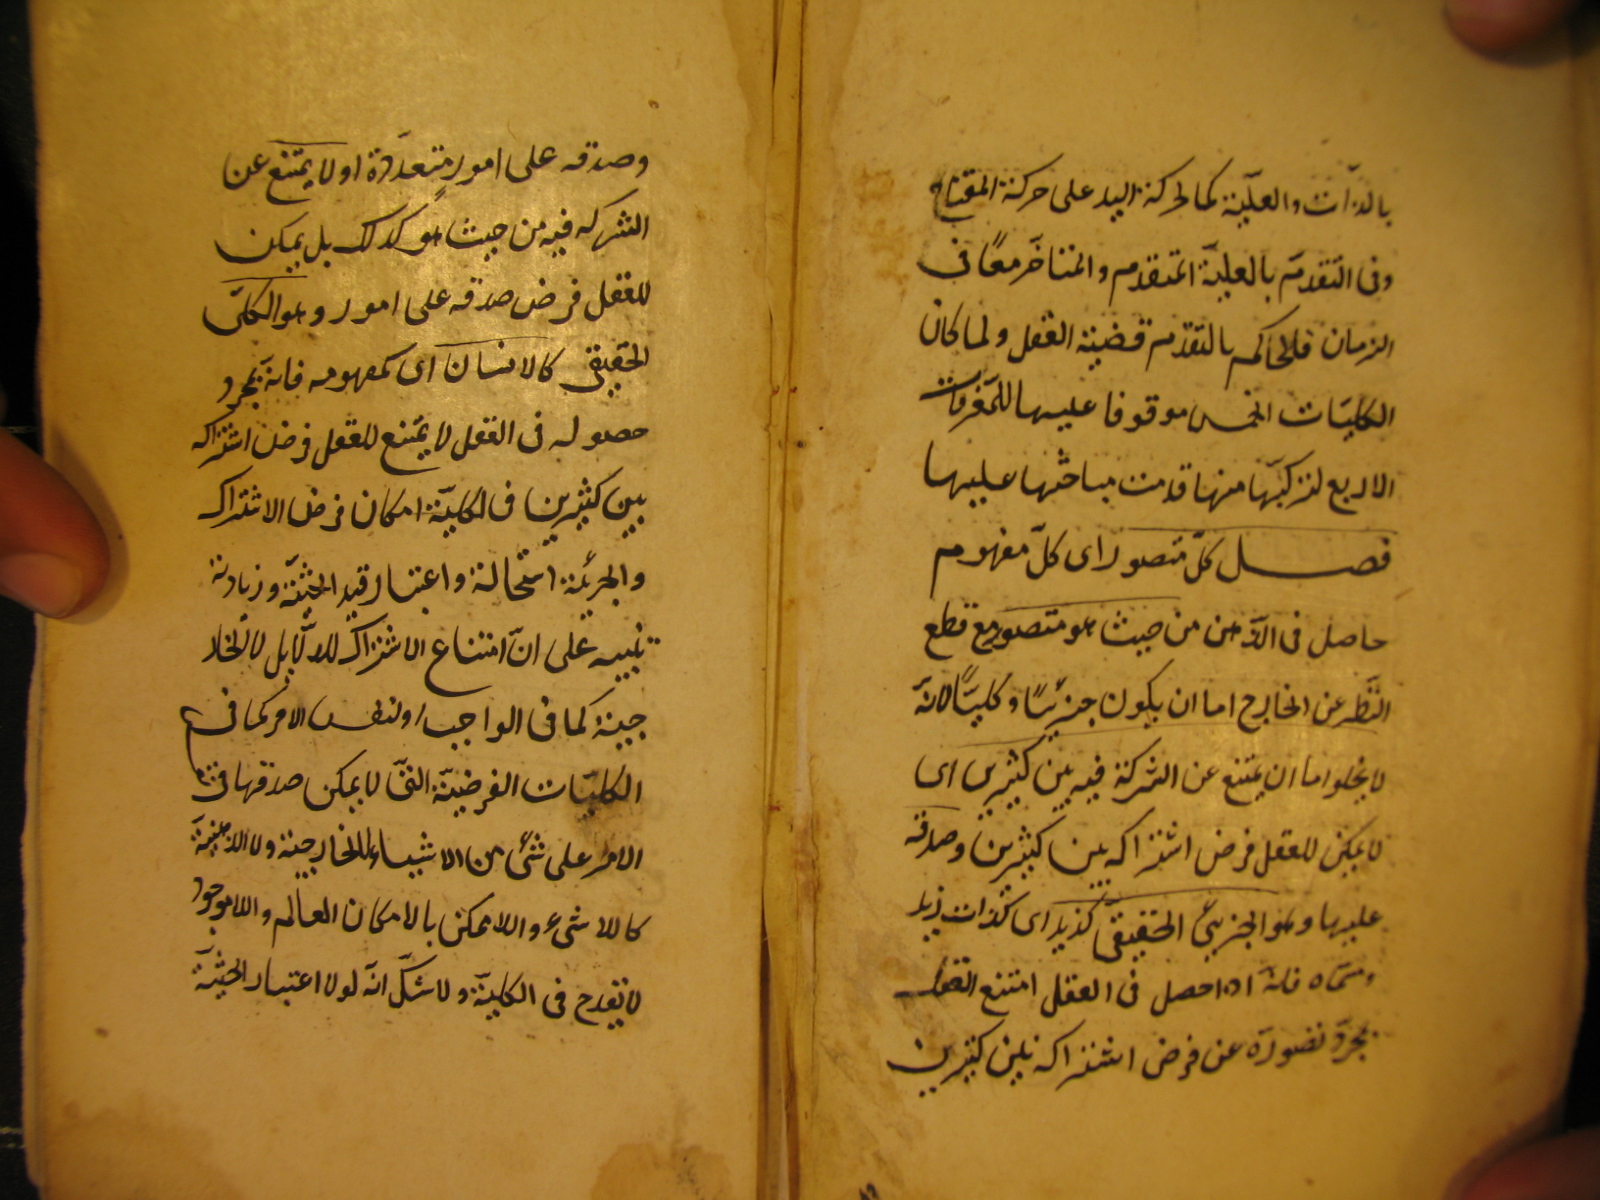 بالذات والعلية كما لحركة اليد على حركة المفتاح
وفى التقدم بالعلية المتقدم والمتاخر معًا فى
الزمان فلحاكم بالتقدم قضية العقل ولما كان
الكليات الخمس موقوفا عليها للمعرفات
الاربع لتركبها منها قدمت مباحثها عليها
فصل كل متصور اى كل مفهوم
حاصل فى الذهن من حيث هو متصور مع قطع
النظر عن الخارج اما ان يكون جزئيًا وكليًا لانه
لا يخلوا ما ان يمتنع عن الشركة فيه بين كثيرين اى
لا يمكن للعقل فرض اشتراكه بين كثيرين وصدقه
عليها وهو الجزئي الحقيقي كزيد اى كذات زيد
ومسماه فانه اذا حصل فى العقل امتنع العقل
بمجرد تصوره عن فرض اشتراكه بين كثيرين
وصدقه على امور متعددة او لا يمتنع عن
الشركه فيه من حيث هو كذلك بل يمكن
للعقل فرض صدقه على امور وهو الكلّى
الحقيقي كالانسان اى كمفهومه فانه بمجرد
حصوله فى العقل لا يمتنع للعقل فرض اشتراكه
بين كثيرين فى الكلية امكان فرض الاشتراك
والجزئية استحالة واعتبار قيد الحيثية وزيادته
تنبيه على انّ امتناع الاشتراك للدلايل لا لخار
جية كما فى الواجب او لنفس الامر كما فى
الكليات الفرضية التى لا يمكن صدقها فى نفس
الامر على شئ من الاشياء الخارجية ولا الذهنية
كاللاشىء واللاممكن بالامكان العالم واللاموجود
لا تقدح فى الكلية ولا شكّ انه لولا اعتبار الحيثية